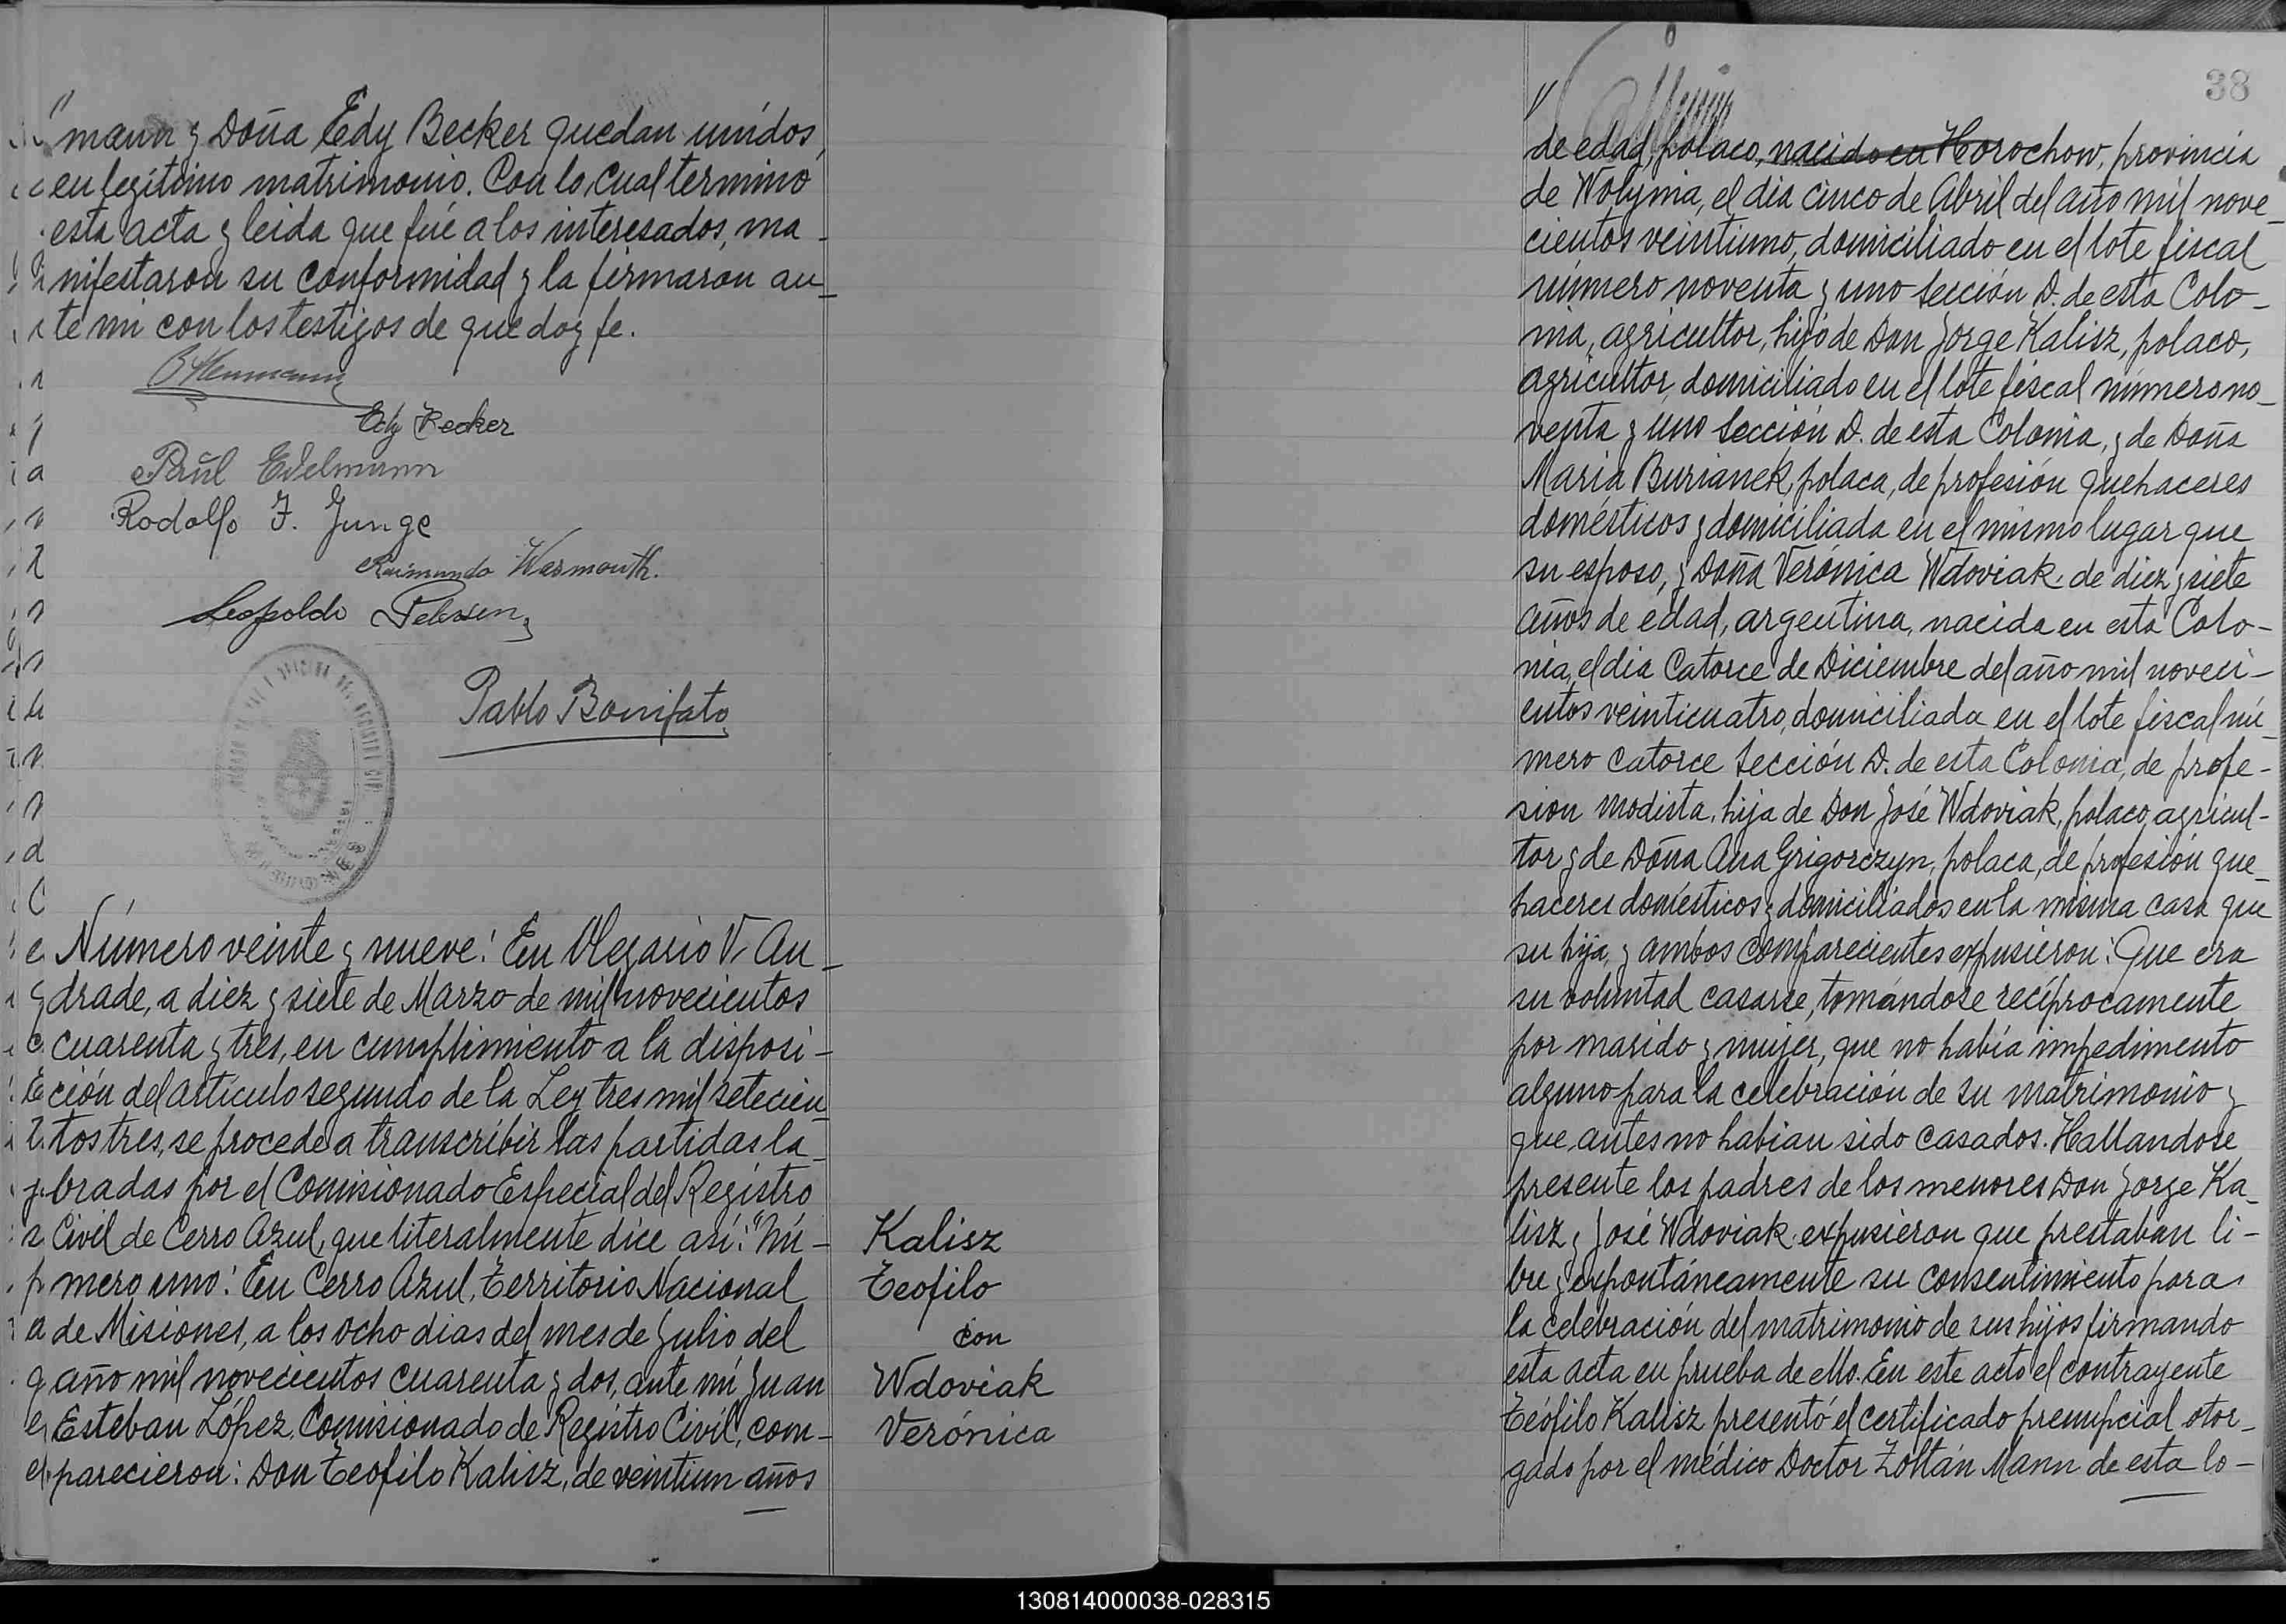 "
mann y Doña Edy Becker quedan unidos
en legítimo matrimonio. Con lo cual terminó
esta acta y leida que fué a los interesados, ma-
nifestaron su conformidad y la firmaron an-
te mi con los testigos de que doy fe.
Edy Becker
Paul Edelmann
Rodolfo F. Junge
Raimundo Warmouth.
Leopoldo Petersen
Pablo Bonifato
Número veinte y nueve: En Olegario V. An-
drade, a diez y siete de Marzo de mil novecientos
cuarenta y tres, en cumplimiento a la disposi-
ción del artículo segundo de la Ley tres mil setecien-
tos tres, se procede a transcribir las partidas la-
bradas por el Comisionado Especial del Registro
Civil de Cerro Azul, que literalmente dice así: "Nú-
mero uno: En Cerro Azul, Territorio Nacional
de Misiones, a los ocho dias del mes de Julio del
año mil novecientos cuarenta y dos, ante mí Juan
Esteban López, Comisionado de Registro Civil, com-
parecieron: Don Teofilo Kalisz, de veintiun años
Kalisz
Teofilo
con
Wdoviak
Verónica
38
"
de edad, polaco, nacido en Horochow, provincia
de Wolynia, el día cinco de Abril del año mil nove-
cientos veintiuno, domiciliado en el lote fiscal
número noventa y uno Sección D. de esta Colo-
nia, agricultor, hijo de Don Jorge Kalisz, polaco,
agricultor, domiciliado en el lote fiscal número no-
venta y uno Sección D. de esta Colonia, y de Doña
María Burianek, polaca, de profesión quehaceres
domésticos y domiciliada en el mismo lugar que
su esposo, y Doña Verónica Wdoviak de diez y siete
años de edad, argentina, nacida en esta Colo-
nia, el día Catorce de Diciembre del año mil noveci-
entos veinticuatro, domiciliada en el lote fiscal nú-
mero catorce Sección D. de esta Colonia, de profe-
sion modista, hija de Don José Wdoviak, polaco, agricul-
tor y de Doña Ana Grigorczyn, polaca, de profesión que-
haceres domésticos y domiciliados en la misma casa que
su hija, y ambos comparecientes expusieron: Que era
su voluntad casarse, tomándose recíprocamente
por marido y mujer, que no había impedimento
alguno para la celebración de su matrimonio y
que antes no habian sido casados. Hallandose
presente los padres de los menores Don Jorge Ka-
lisz y José Wdoviak expusieron que prestaban li-
bre y expontáneamente su consentimiento para
la celebración del matrimonio de sus hijos firmando
esta acta en prueba de ello. En este acto el contrayente
Teófilo Kalisz presentó el certificado prenupcial otor-
gado por el médico Doctor Zoltán Mann de esta lo-
130814000038-028315